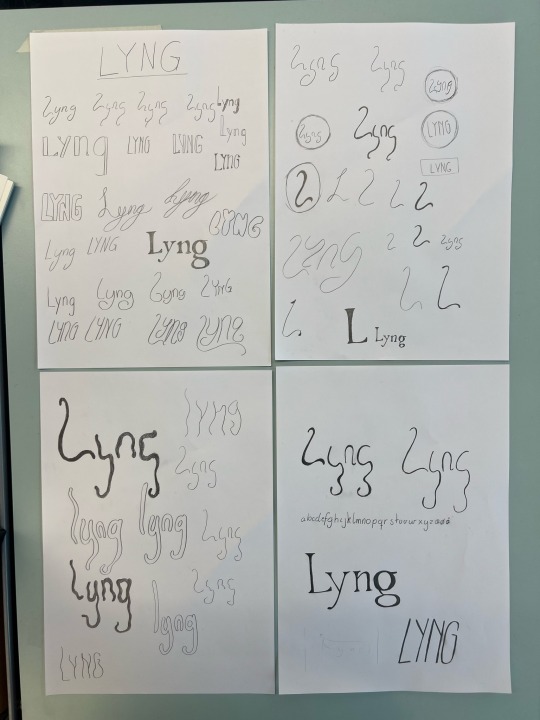 LYNG
Lyng Lyng Lyng Lyng Lyng
Lyng
Lyng LYNG LYNG
LYNG
LYNG Lyng Lyng
LYNG
Lyng LYNG Lyng
Lyng Lyng Lyng LYNG
LYNG LYNG Lyng Lyng
Lyng Lyng
Lyng
Lyng Lyng LYNG
LYNG
L L L L L
Lyng L L Lyng
L L
L L Lyng
Lyng Lyng
Lyng
Lyng Lyng Lyng
Lyng Lyng
Lyng
LYNG
Lyng Lyng
abcdefghijklmnopqrstuvwxyzæøå
Lyng
LYNG